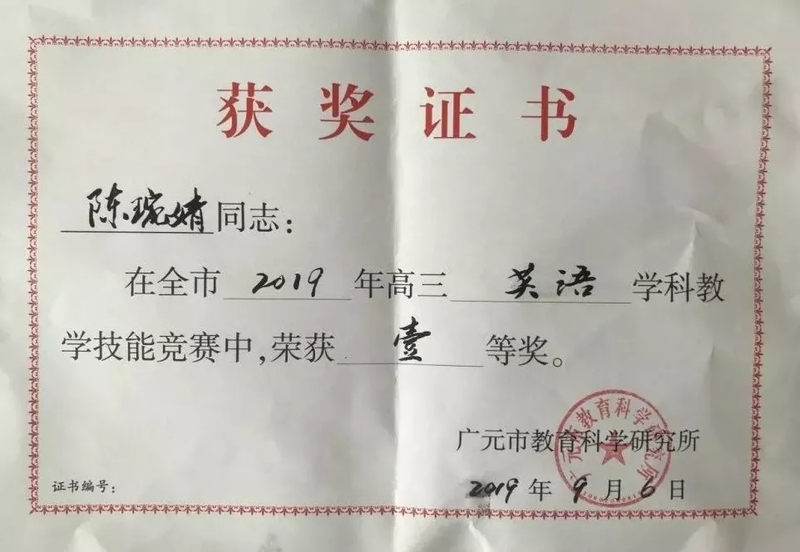 获奖证书
陈琬婧同志：
在全市2019年高三英语学科教
学技能竞赛中，荣获壹等奖。
广元市教育科学研究所
广元市教育科学研究所
2019年9月6日
证书编号：